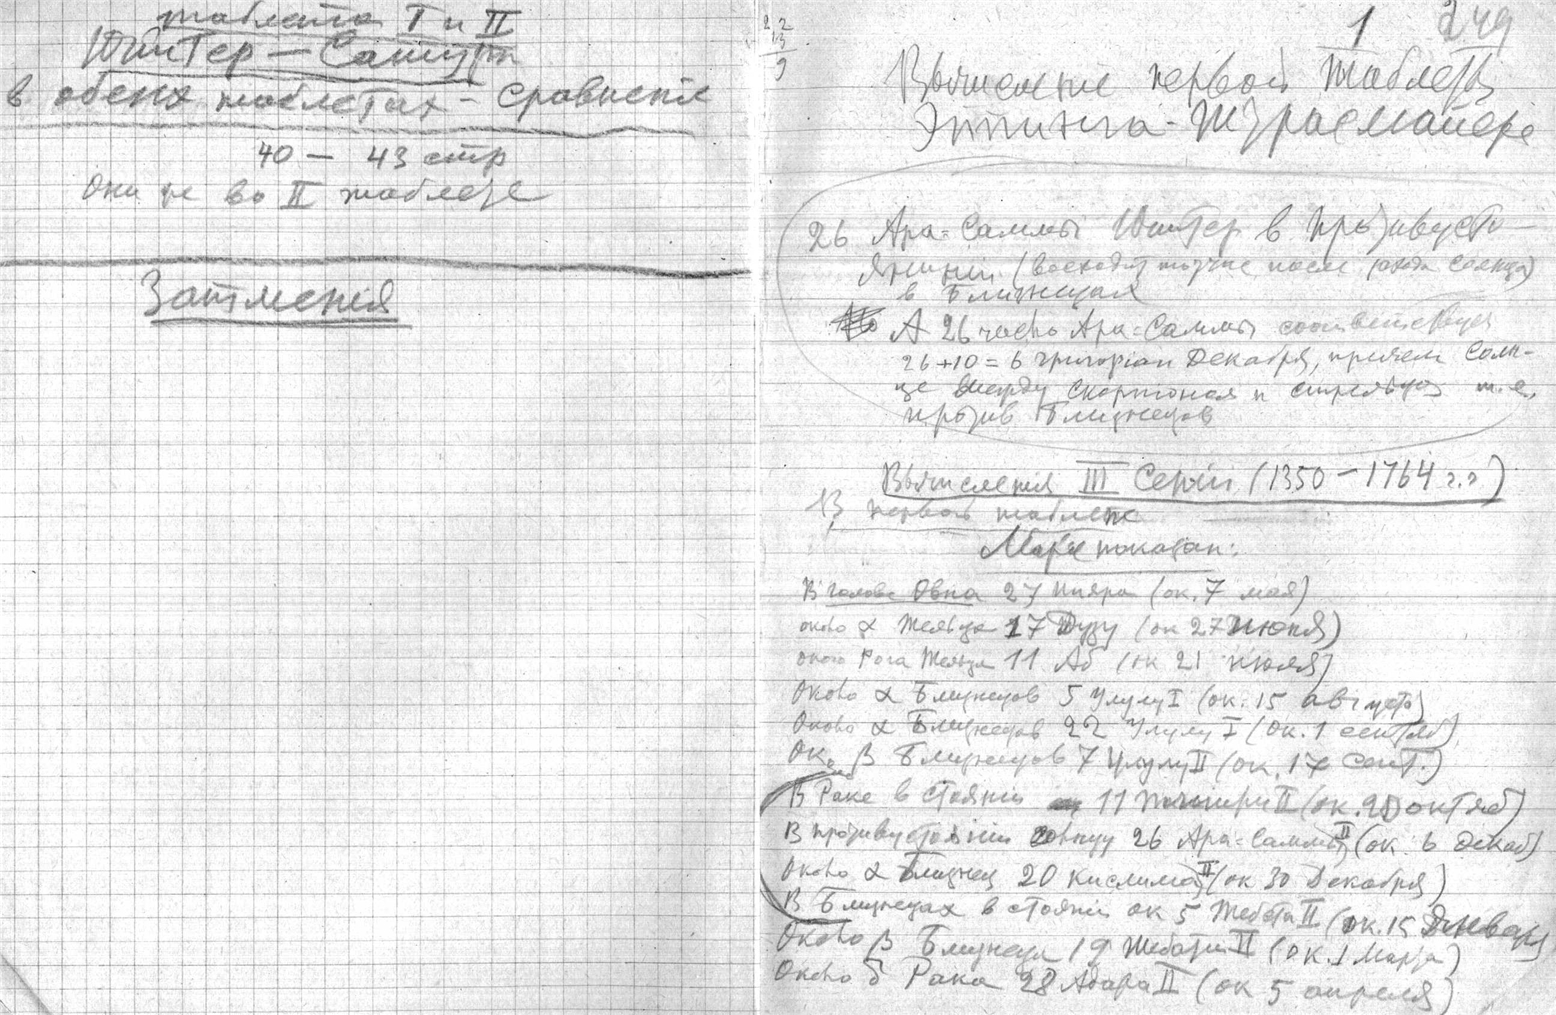 таблета I и II
Юпитер — Сатурн
в обеих таблетах - сравнение
40 — 43 стр
Они же во II таблете
Затменія
1 249
22
13
9
Вычисленіе первой таблеты
Эппинга-Штрасмайера
26 Ара-Саммы Юпитер в противусто-
янии (восходит тотчас после захода солнца)
в Близнецах
А 26 число Ара-Саммы соответствует
26+10=6 григоріан Декабря, причем Солн-
це между Скорпіоном и стрельцом т.е.
против Близнецов
Вычисления III Серіи (1350 — 1764 г.г)
В первой таблете
Марс показан:
В голове Овна 27 Ніяра (ок. 7 мая)
около α Тельца 17 Дузу (ок 27 июня)
около Рога Тельца 11 Аб (ок 21 июля)
Около α Близнецов 5 Улулу I (ок. 15 августа)
Около α Близнецов 22 Улулу I (ок. 1 сентяб)
Ок. β Близнецов 7 Улулу II (ок. 17 сент.)
В Раке в стоянии 11 Тишири II (ок. 20 октяб)
В противустоянии 26 Ара-Саммы II (ок. 6 декаб)
Около α Близнец 20 Кислима II (ок 30 Декабря)
В Близнецах в стояніи ок 5 Жебета II (ок. 15 Января)
Около β Близнеца 19 Жебати II (ок. 1 Марта)
Около δ Рака 28 Адара II (ок 5 апреля)